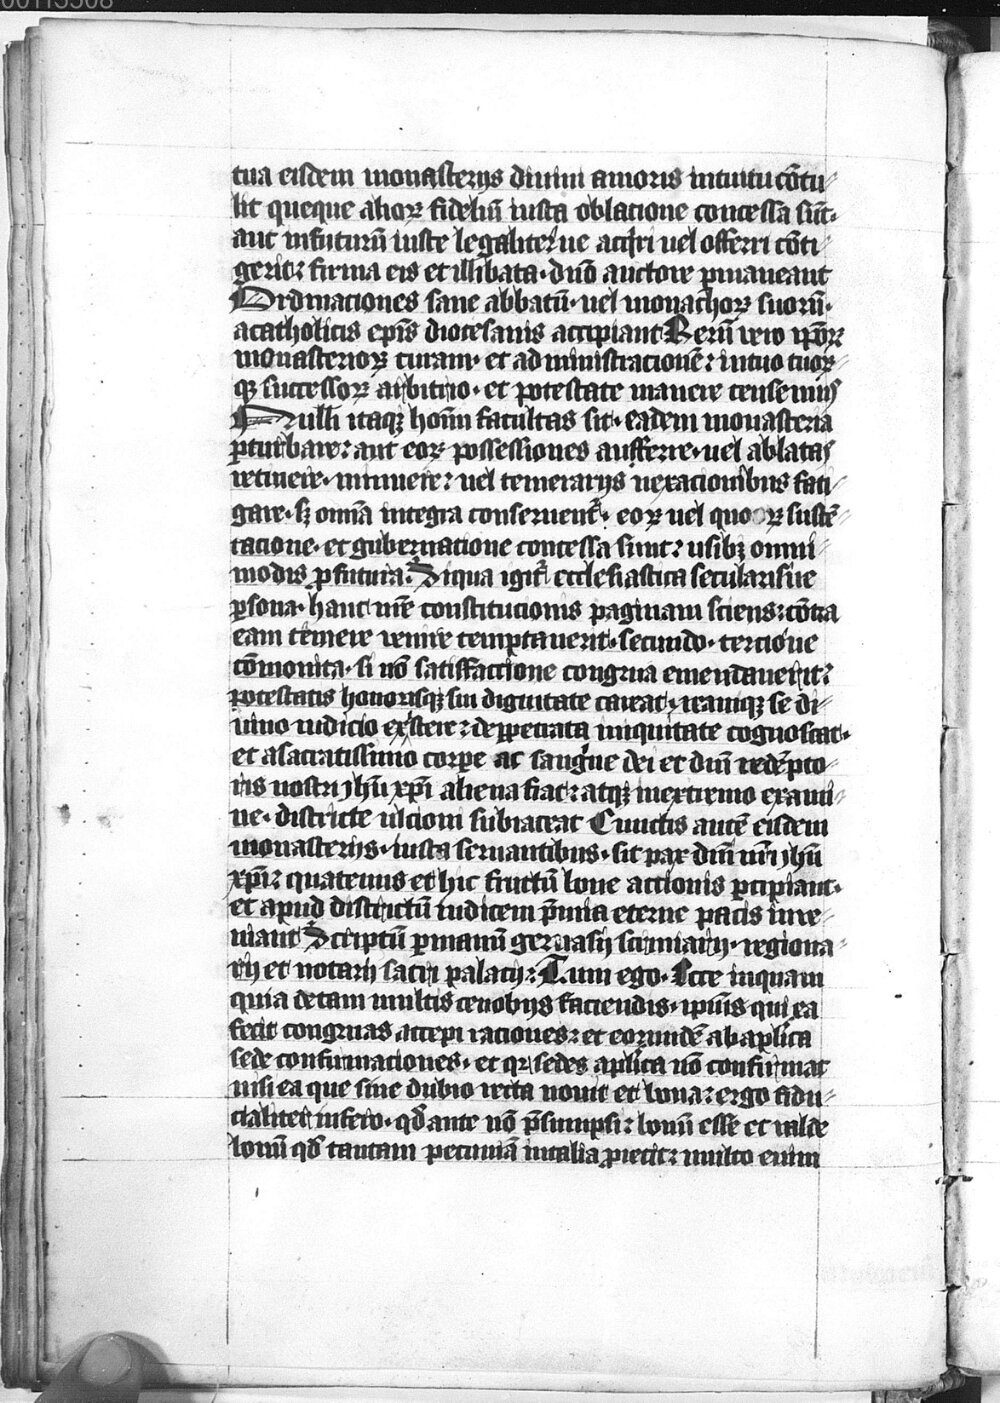 00113508
tua eisdem monasterijs diuini amoris intuitu cōtu
lit queque alioꝝ fideliū iusta oblacione concessa sūt·
aut infuturū iuste legaliterue acq̇ri uel offerri cōti
gerit: firma eis et illibata· dn̄o auctore ꝑmaneant
Ordinaciones sane abbatū· uel monachoꝝ suorū·
acatholicis ep̄is diocesanis accipiant Rerū vero ip̄oꝝ
monasterioꝝ curam· et administracionē: intuo tuoꝝ
qꝫ successoꝝ arbitrio· et potestate manere censemus
Nulli itaqꝫ hoīm facultas sit· eadem monasteria
ꝑturbare: aut eoꝝ possessiones aufferre· uel ablatas
retinere· minuere: uel temerarijs uexacionibus fati
gare· sꝫ om̄a integra conseruent᷑· eoꝝ uel quoꝝ sustē
tacione· et gubernatione concessa sunt: usibꝫ omni
modis ꝓfutura. Siqua igit᷑ ecclesiastica secularisue
ꝑsona· hanc nr̄e constitucionis paginam sciens: cōtra
eam temere venire temptauerit· secundo· tercioue
cōmonita· si nō satisfactione congrua emendauerit:
potestatis honorisqꝫ sui dignitate careat· reamqꝫ se di
uino iudicio existere: de ꝑpetrata iniquitate cognoscat·
et asacratissimo corpore ac sanguine dei et dn̄i redēpto
ris nostri jhū xp̄i aliena fiat: atqꝫ inextremo exami
ne· districte ulcioni subiaceat Cunctis autē eisdem
monasterijs· iusta seruantibus· sit pax dn̄i nr̄i jhū
xp̄i: quatenus et hic fructū bone actionis ꝑcipiant·
et apud districtū iudicem p̄mia eterne pacis inue
niant Scriptū ꝑ manū geruasij scriniarij· regiona
rij et notarij sacri palacij: Tum ego· Ecce inquam
quia de tam multis cenobijs faciendis· ip̄ius qui ea
fecit congruas accepi raciones: et eorundē ab ap̄lica
sede confirmationes· et qꝛ sedes ap̄lica nō confirmat
nisi ea que sine dubio recta nouit et bona: ergo fidu
cialiter infero· qd̄ ante nō p̄sumpsi: bonū esse et valde
bonū qd̄ tantam pecuniā intalia ꝓiecit: multo enim